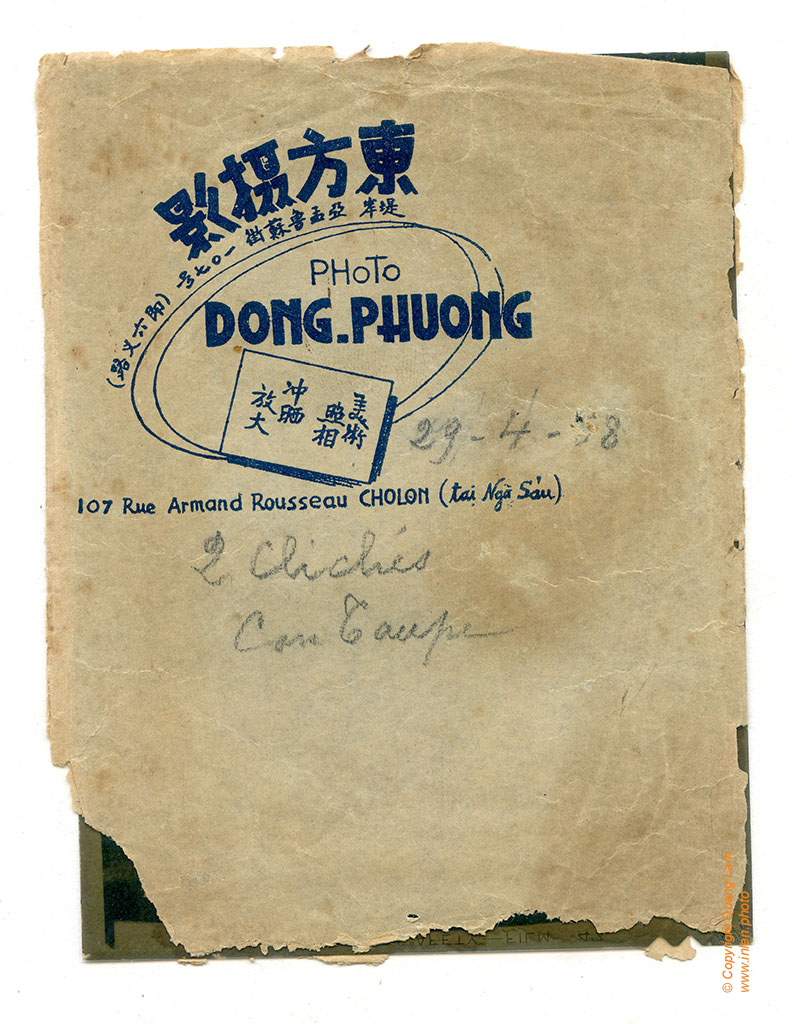 東方摄影
堤岸 亞孟魯蘇街一〇七号 (即六叉路)
PHOTO
DONG-PHUONG
美術
照相
冲晒
放大
29-4-58
107 Rue Armand Rousseau CHOLON (tại Ngã Sáu)
2 Clichés
Con Taupe
FILM
© Copyright Quang Lam
www.inlen.photo